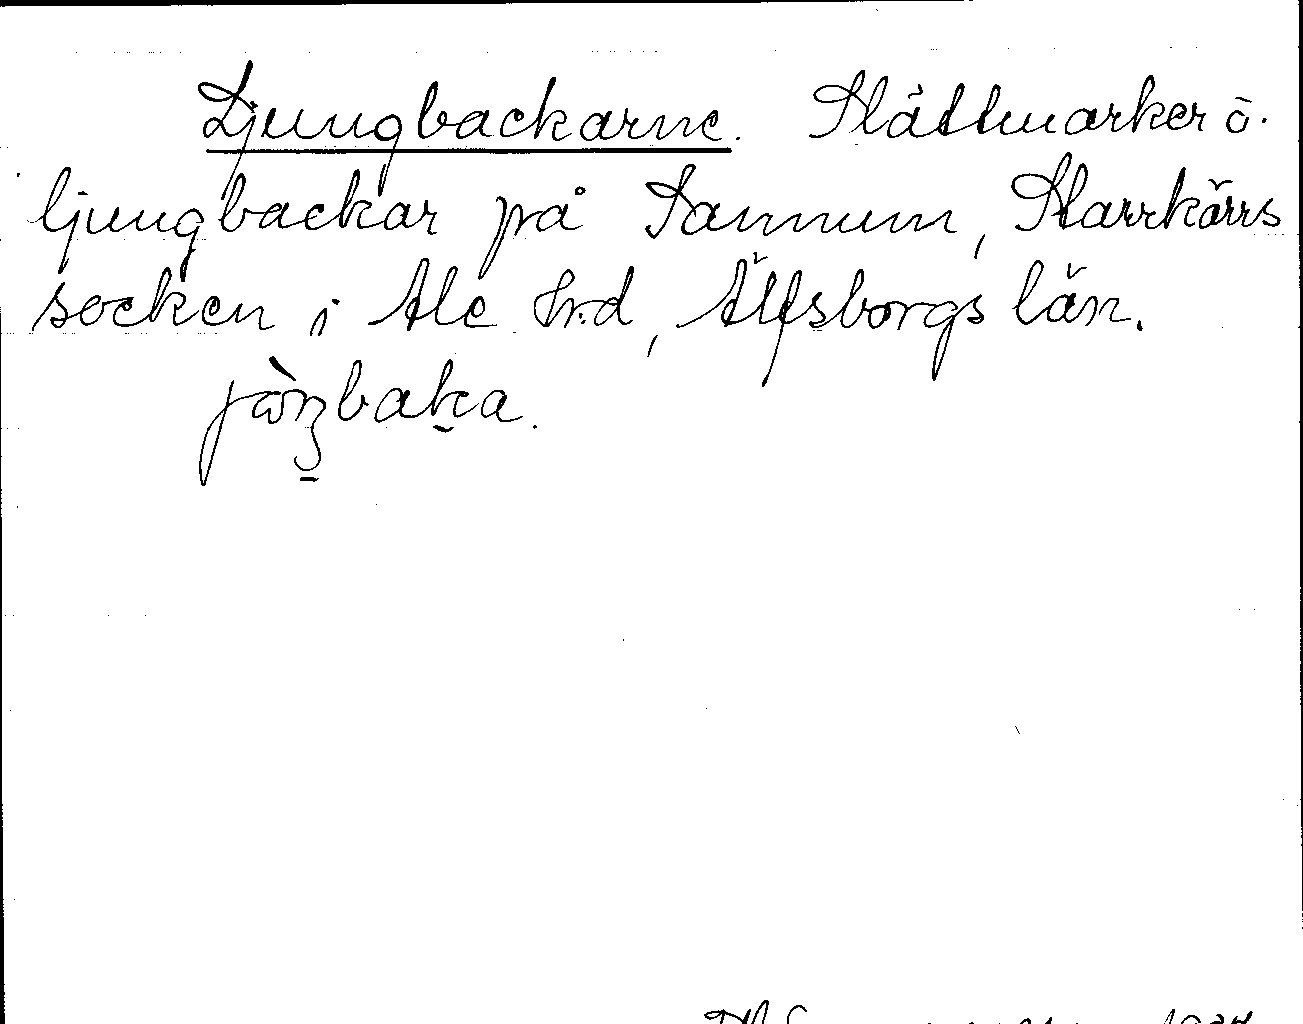 Ljungbackarne. Slåttmarker o.
ljungbackar på Sannum, Starrkärrs
socken i Ale hrd, Älfsborgs län.